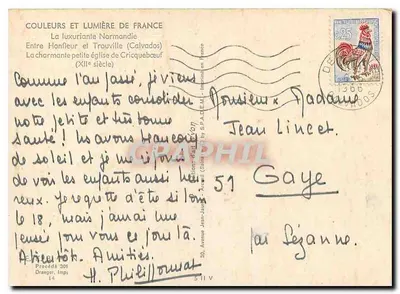 COULEURS ET LUMIÈRE DE FRANCE
La luxuriante Normandie
Entre Honfleur et Trouville (Calvados)
La charmante petite église de Cricquebœuf
(XIIe siècle)
Comme l'an passé, je viens
avec les enfants consolider
notre petite et très bonne
santé! Ils avons beaucoup
de soleil et je me réjouis
de voir les enfants aussi heu
reux. Je regrette d'être si loin
le 18, mais j'aurai une
pensée pour vous ce jour là.
A bientôt. Amitiés.
H.
Monsieur Madame
Jean Lincet
51 Gaye
par Sézanne
0,25
1966